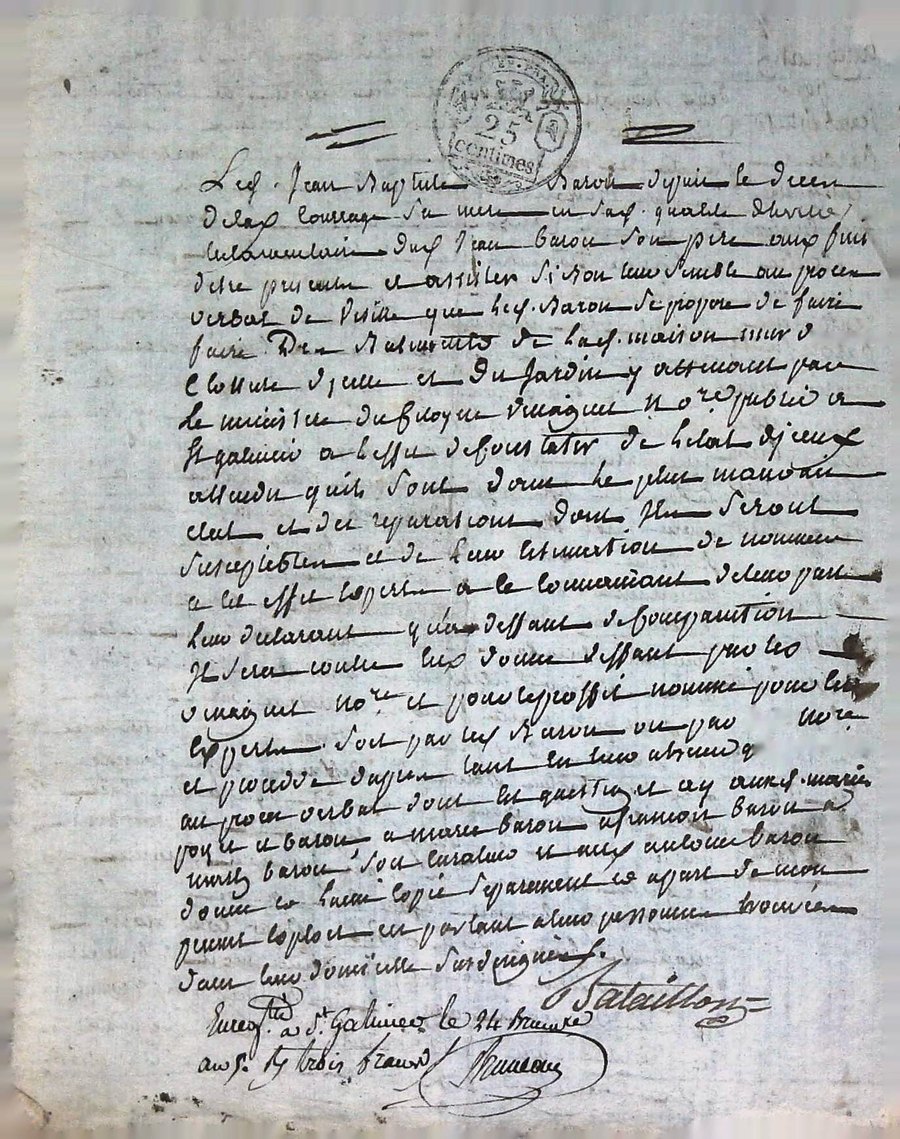 25
centimes
Led. Jean Baptiste Baron depuis le deces
de lad. sa mere en sad. qualite
testamentaire dud. Jean baron son pere aux fins
detre presents et assister si bon leur semble au proces
verbal de visitte que led. Baron se propose de faire
faire Des Batiments de lad. maison mur d
Clotture dicelle et du Jardin y attenant par
le ministere du Citoyen not.re public a
St galmier a leffet de Constater de letat diceux
attendu quils sont dans le plus mauvais
etat et des reparations dont Ils seront
susceptibles et de leur Estimation de nommer
a cet effet Experts a le Convenant de leur part
leur declarant qua deffaut de Comparution
Il sera contre Eux donné deffaut par led.
not.re et pour le proffit nommé pour Eux
Experts soit par led. Baron ou par not.re
et procedé dapres tant En leur absence q
au proces verbal dont Est question et ay auxd. mariés
et baron a marie baron a françois baron a
baron soit et aud. antoine baron
donné et laissé Copie separement et apart de mon
present Exploit en parlant a leur personnes trouvées
dans leur domicille
Bataillon
Enreg.tré a St. Galmier le 24 Brumaire
an 5. R. trois francs